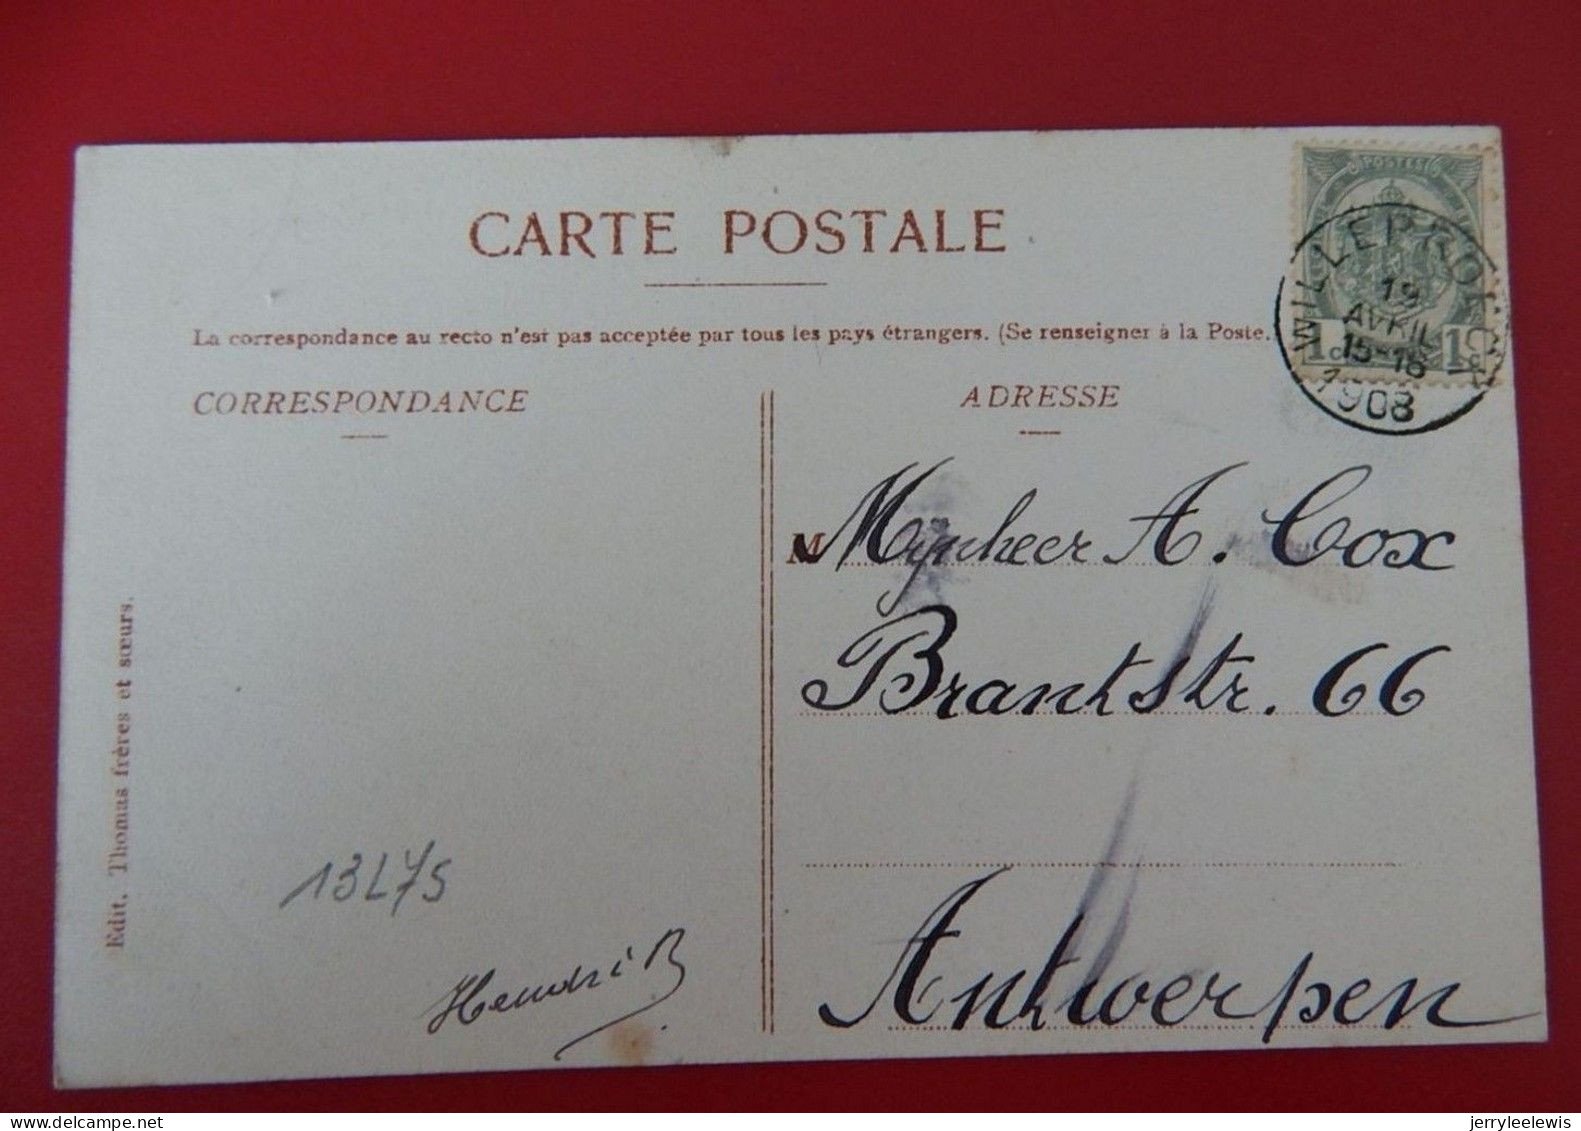 CARTE POSTALE
POSTES
WILLEBROECK
19
AVRIL
15-16
1908
1c 1c
La correspondance au recto n'est pas acceptée par tous les pays étrangers. (Se renseigner à la Poste.)
CORRESPONDANCE
ADRESSE
M Mynheer A. Cox
Brantstr. 66
Antwerpen
13L75
Hendri B
Edit. Thomas frères et sœurs.
delcampe.net
jerryleelewis